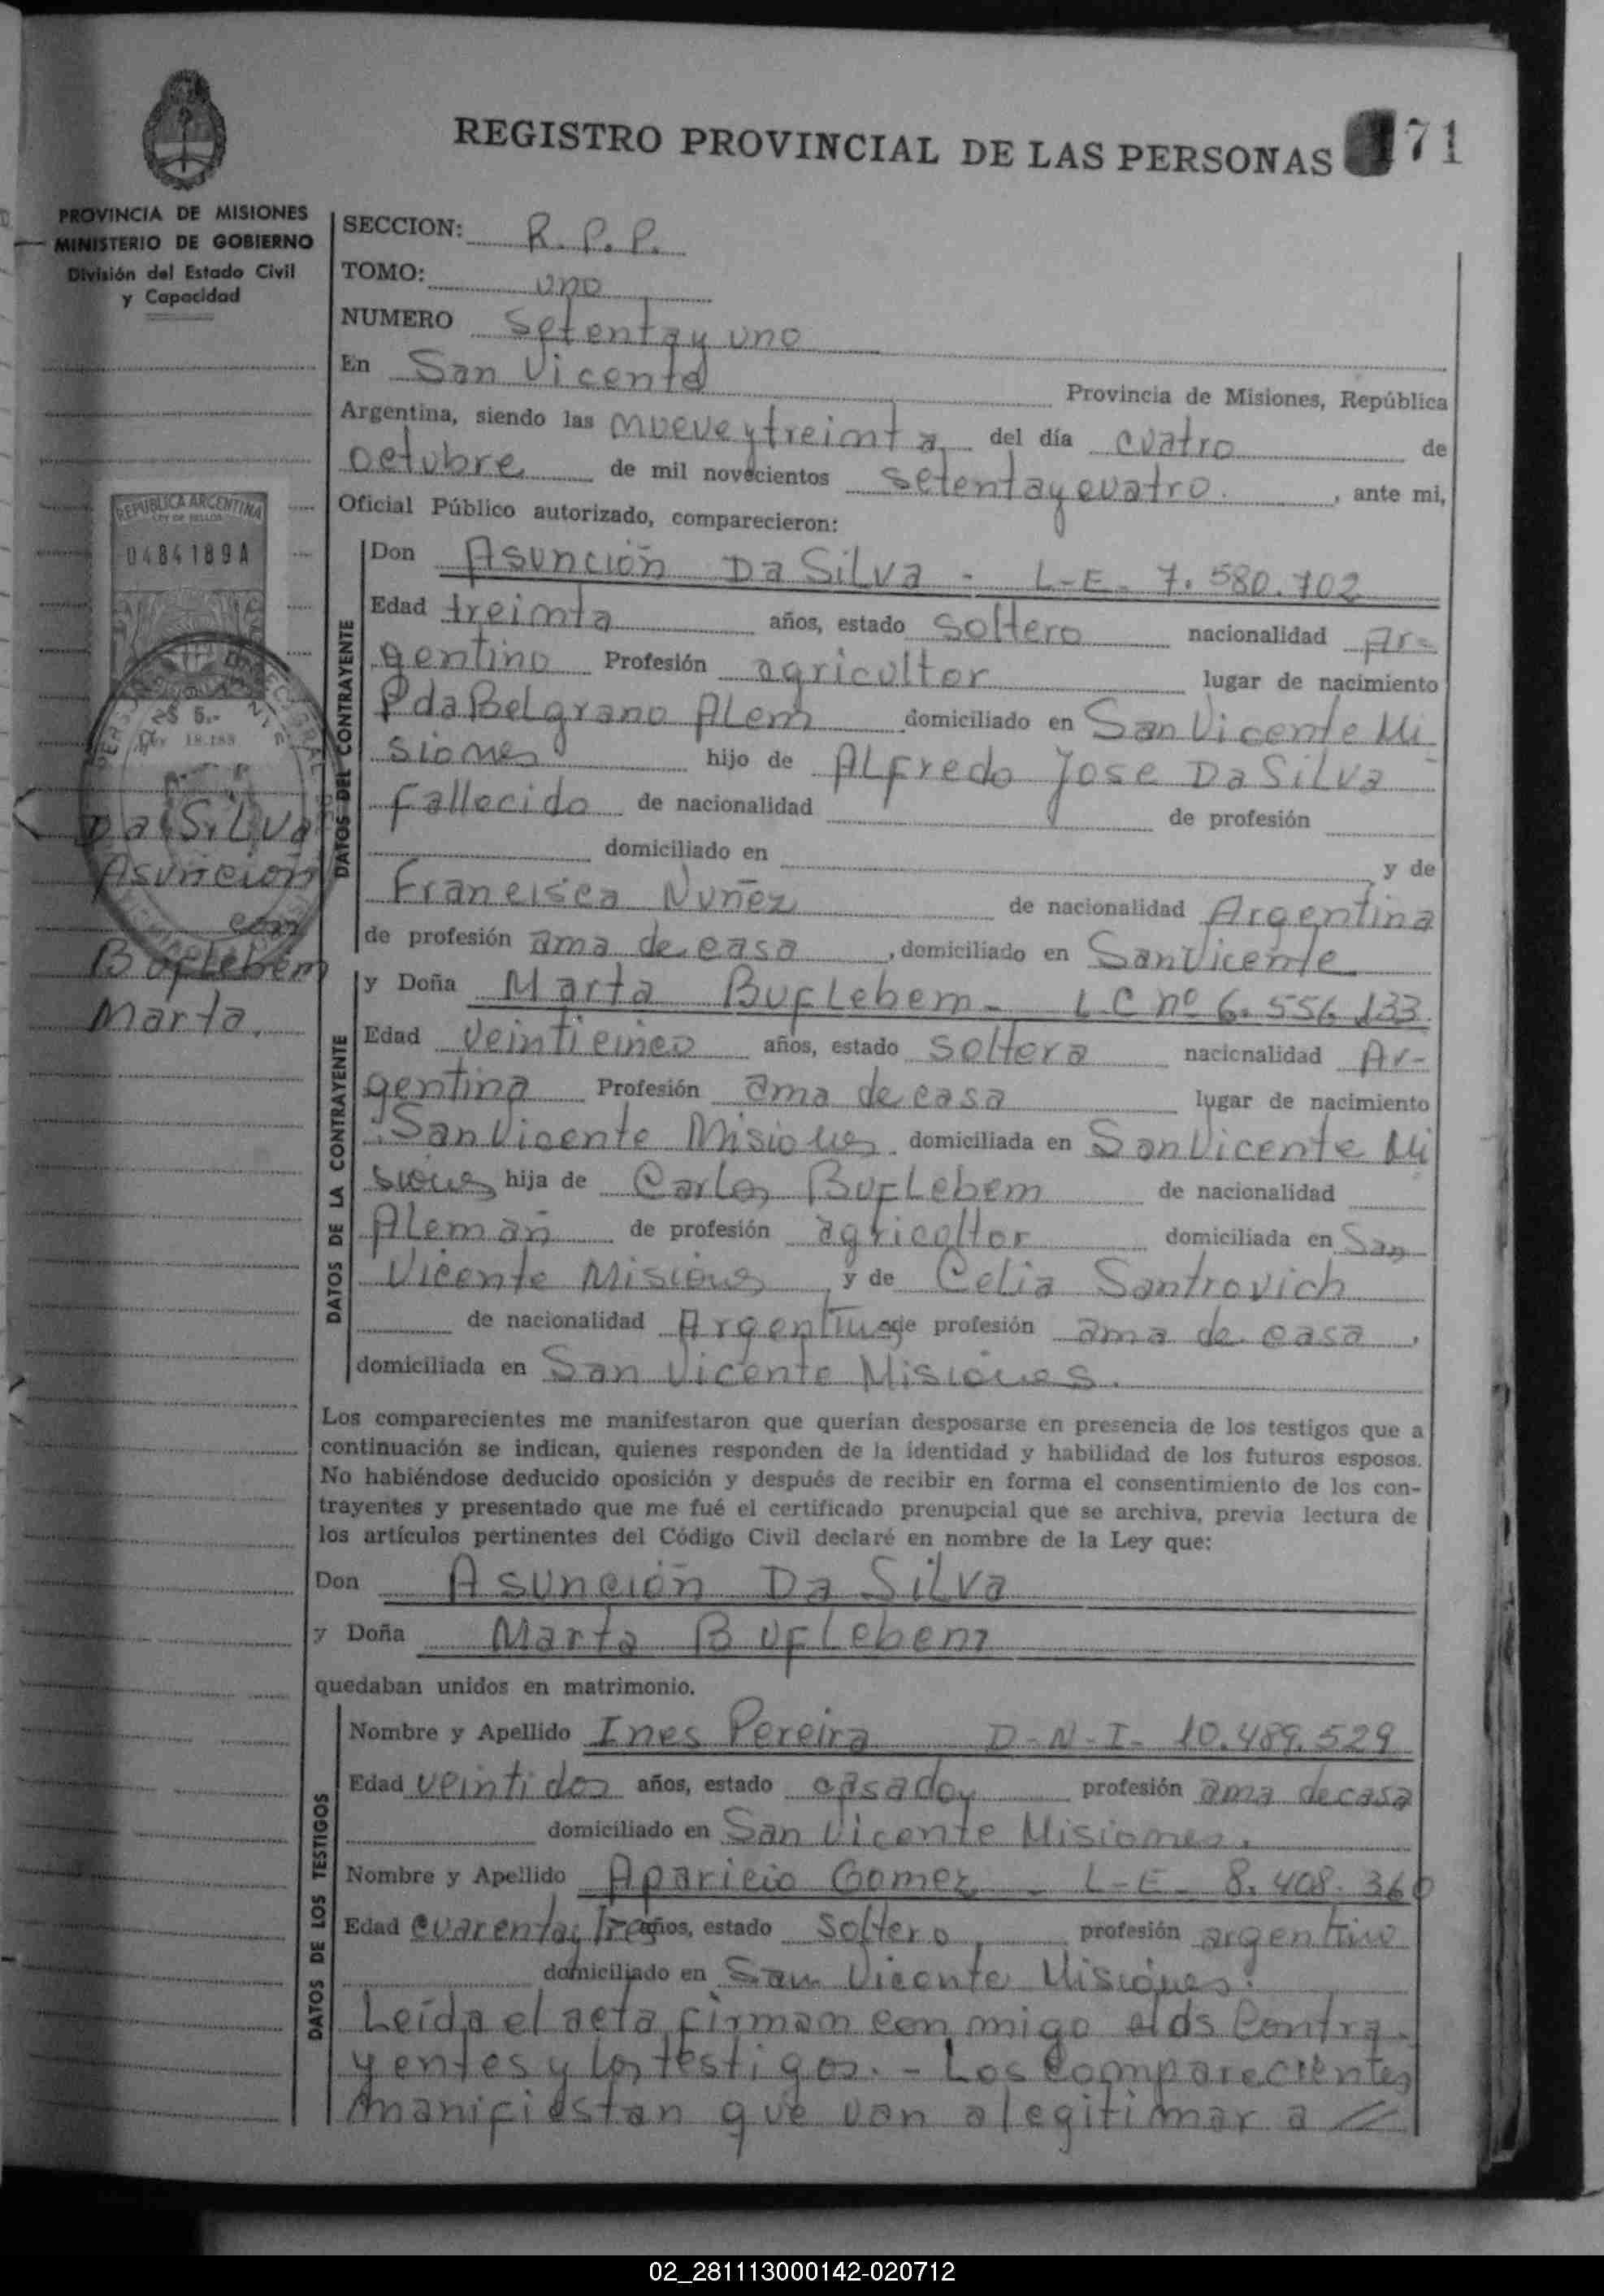 REGISTRO PROVINCIAL DE LAS PERSONAS 71
PROVINCIA DE MISIONES
MINISTERIO DE GOBIERNO
División del Estado Civil
y Capacidad
SECCION: R. P. P.
TOMO: uno
NUMERO setenta y uno
En San Vicente Provincia de Misiones, República
Argentina, siendo las nueve y treinta del día cuatro de
octubre de mil novecientos setenta y cuatro. , ante mi,
Oficial Público autorizado, comparecieron:
REPUBLICA ARGENTINA
LEY DE SELLOS
0484189A
Da Silva
Asuncion
con
Buflebem
Marta.
DATOS DEL CONTRAYENTE
Don Asunción Da Silva - L-E- 7.580.702
Edad treinta años, estado soltero nacionalidad Ar-
gentino Profesión agricultor lugar de nacimiento
Pda Belgrano Alem domiciliado en San Vicente Mi
siones hijo de Alfredo Jose Da Silva
fallecido de nacionalidad de profesión
domiciliado en y de
Francisca Nuñez de nacionalidad Argentina
de profesión ama de casa , domiciliado en San Vicente
DATOS DE LA CONTRAYENTE
y Doña Marta Buflebem - L C nº 6.556.133.
Edad veinticinco años, estado soltera nacionalidad Ar-
gentina Profesión ama de casa lugar de nacimiento
San Vicente Misiones domiciliada en San Vicente Mi
siones hija de Carlos Buflebem de nacionalidad
Aleman de profesión agricoltor domiciliada en San
Vicente Misiones y de Celia Santrovich
de nacionalidad Argentina de profesión ama de casa ,
domiciliada en San Vicente Misiones.
Los comparecientes me manifestaron que querían desposarse en presencia de los testigos que a
continuación se indican, quienes responden de la identidad y habilidad de los futuros esposos.
No habiéndose deducido oposición y después de recibir en forma el consentimiento de los con-
trayentes y presentado que me fué el certificado prenupcial que se archiva, previa lectura de
los artículos pertinentes del Código Civil declaré en nombre de la Ley que:
Don Asunción Da Silva
y Doña Marta Buflebem
quedaban unidos en matrimonio.
DATOS DE LOS TESTIGOS
Nombre y Apellido Ines Pereira D-N-I- 10.489.529
Edad veintidos años, estado profesión ama de casa
domiciliado en San Vicente Misiones.
Nombre y Apellido Aparicio Gomez - L-E- 8.408.360
Edad cuarenta y tres años, estado soltero, profesión argentino
domiciliado en San Vicente Misiones.
Leída el acta firman con migo los Contra-
yentes y los testigos. - Los comparecientes
manifiestan que van a legitimar a //
02_281113000142-020712